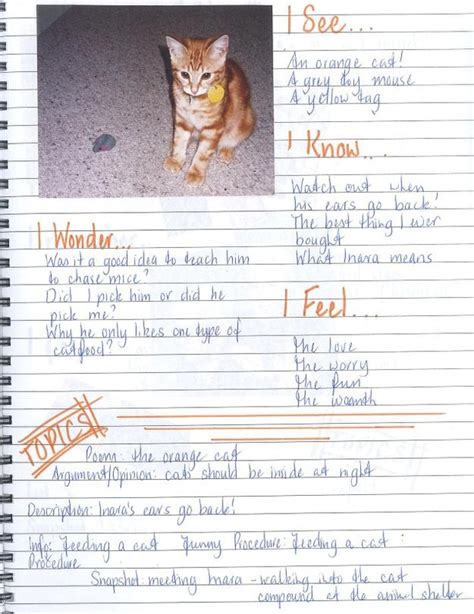 I See...
An orange cat!
A grey toy mouse
A yellow tag
I Know...
Watch out when
his ears go back!
The best thing I ever
bought
What Inara means
I Wonder...
Was it a good idea to teach him
to chase mice?
Did I pick him or did he
pick me?
Why he only likes one type of
catfood?
I Feel...
the love
the worry
the fun
the warmth
TOPICS
Poem: the orange cat
Argument/Opinion: cats should be inside at night
Description: Inara's ears go back!
Info: Feeding a cat Funny Procedure: Feeding a cat:
Procedure
Snapshot: meeting Inara - walking into the cat
compound at the animal shelter